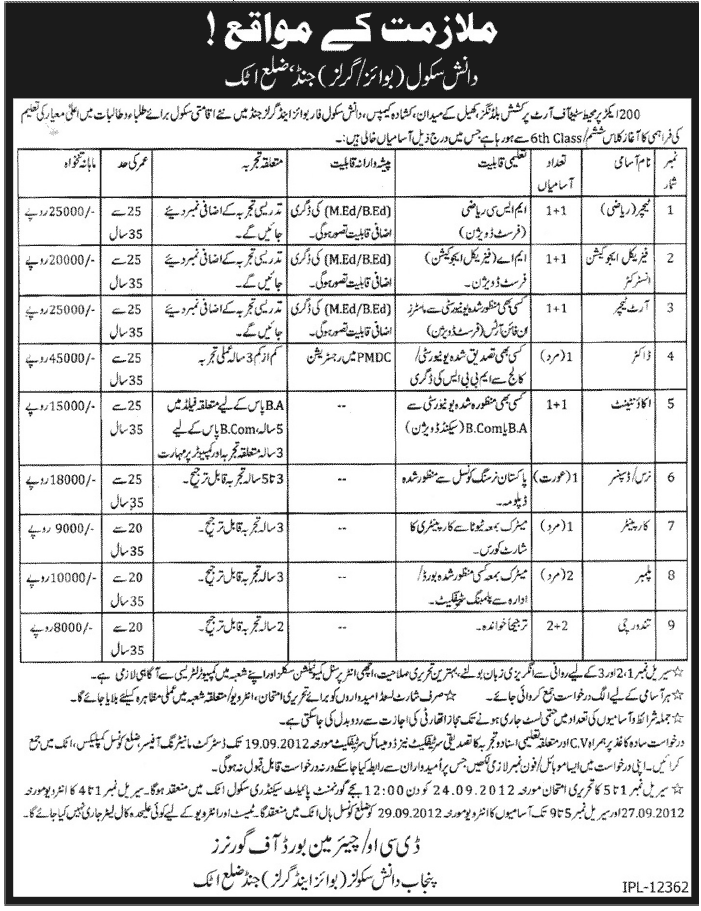 ملازمت کے مواقع !
دانش سکول (بوائز/گرلز) جنڈ، ضلع اٹک
200 ایکڑ پر محیط سٹیٹ آف آرٹ پر کشش بلڈنگز، کھیل کے میدان، کشادہ کیمپس، دانش سکول فار بوائز اینڈ گرلز جنڈ میں نئے اقامتی سکول برائے طلباء و طالبات میں اعلیٰ معیار کی تعلیم
کی فراہمی کا آغاز کلاس ششم/6th Class سے ہو رہا ہے جس میں درج ذیل آسامیاں خالی ہیں:۔
نمبر شمار | نام آسامی | تعداد آسامیاں | تعلیمی قابلیت | پیشہ وارانہ قابلیت | متعلقہ تجربہ | عمر کی حد | ماہانہ تنخواہ
1 | ٹیچر (ریاضی) | 1+1 | ایم ایس سی ریاضی (فرسٹ ڈویژن) | (M.Ed/B.Ed) کی ڈگری اضافی قابلیت تصور ہوگی۔ | تدریسی تجربہ کے اضافی نمبر دیئے جائیں گے۔ | 25 سے 35 سال | 25000/- روپے
2 | فزیکل ایجوکیشن انسٹرکٹر | 1+1 | ایم اے (فزیکل ایجوکیشن) فرسٹ ڈویژن۔ | (M.Ed/B.Ed) کی ڈگری اضافی قابلیت تصور ہوگی۔ | تدریسی تجربہ کے اضافی نمبر دیئے جائیں گے۔ | 25 سے 35 سال | 20000/- روپے
3 | آرٹ ٹیچر | 1+1 | کسی بھی منظور شدہ یونیورسٹی سے ماسٹرز ان فائن آرٹس (فرسٹ ڈویژن) | (M.Ed/B.Ed) کی ڈگری اضافی قابلیت تصور ہوگی۔ | تدریسی تجربہ کے اضافی نمبر دیئے جائیں گے۔ | 25 سے 35 سال | 25000/- روپے
4 | ڈاکٹر | 1 (مرد) | کسی بھی تصدیق شدہ یونیورسٹی/کالج سے ایم بی بی ایس کی ڈگری | PMDC میں رجسٹریشن | کم از کم 3 سالہ عملی تجربہ | 25 سے 35 سال | 45000/- روپے
5 | اکاؤنٹینٹ | 1+1 | کسی بھی منظور شدہ یونیورسٹی سے B.A یا B.Com (سیکنڈ ڈویژن) | -- | B.A پاس کے لیے متعلقہ فیلڈ میں 5 سالہ، B.Com پاس کے لیے 3 سالہ متعلقہ تجربہ اور کمپیوٹر پر مہارت | 25 سے 35 سال | 15000/- روپے
6 | نرس/ڈسپنسر | 1 (عورت) | پاکستان نرسنگ کونسل سے منظور شدہ ڈپلومہ۔ | -- | 3 تا 5 سالہ تجربہ قابل ترجیح۔ | 25 سے 35 سال | 18000/- روپے
7 | کارپینٹر | 1 (مرد) | میٹرک بمعہ ٹیوٹا سے کارپینٹری کا شارٹ کورس۔ | -- | 3 سالہ تجربہ قابل ترجیح۔ | 20 سے 35 سال | 9000/- روپے
8 | پلمبر | 2 (مرد) | میٹرک بمعہ کسی منظور شدہ بورڈ/ادارہ سے پلمبنگ سرٹیفکیٹ۔ | -- | 3 سالہ تجربہ قابل ترجیح۔ | 20 سے 35 سال | 10000/- روپے
9 | تندورچی | 2+2 | ترجیحاً خواندہ۔ | -- | 2 سالہ تجربہ قابل ترجیح۔ | 20 سے 35 سال | 8000/- روپے
☆ سیریل نمبر 1، 2 اور 3 کے لیے روانی سے انگریزی زبان بولنے، بہترین تحریری صلاحیت، اچھی انٹر پرسنل کمیونیکیشن سکلز اور اپنے شعبہ میں کمپیوٹر لٹریسی سے آگاہی لازمی ہے۔
☆ ہر آسامی کے لیے الگ درخواست جمع کروائی جائے۔ ☆ صرف شارٹ لسٹڈ امیدواروں کو برائے تحریری امتحان، انٹرویو/متعلقہ شعبہ میں عملی مظاہرہ کیلئے بلایا جائے گا۔
☆ جملہ شرائط و آسامیوں کی تعداد میں حتمی لسٹ جاری ہونے تک مجاز اتھارٹی کی اجازت سے ردوبدل کی جاسکتی ہے۔
درخواست سادہ کاغذ پر ہمراہ C.V اور متعلقہ تعلیمی اسناد و تجربہ کا تصدیقی سرٹیفکیٹ نیز ڈومیسائل سرٹیفکیٹ مورخہ 19.09.2012 تک ڈسٹرکٹ مانیٹرنگ آفیسر، ضلع کونسل کمپلیکس، اٹک میں جمع
کرائیں۔ اپنی درخواست میں ایسا موبائل/فون نمبر لازمی لکھیں جس پر اُمیدواران سے رابطہ کیا جاسکے ورنہ درخواست قابل قبول نہ ہوگی۔
☆ سیریل نمبر 1 تا 5 کا تحریری امتحان مورخہ 24.09.2012 کو دن 12:00 بجے گورنمنٹ پائیلٹ سیکنڈری سکول اٹک میں منعقد ہوگا۔ سیریل نمبر 1 تا 4 کا انٹرویو مورخہ
27.09.2012 اور سیریل نمبر 5 تا 9 تک آسامیوں کا انٹرویو مورخہ 29.09.2012 کو ضلع کونسل ہال اٹک میں منعقد ہوگا۔ ٹیسٹ اور انٹرویو کے لیے کوئی علیحدہ کال لیٹر جاری نہیں کیا جائے گا۔
ڈی سی او/چیئر مین بورڈ آف گورنرز
پنجاب دانش سکولز (بوائز اینڈ گرلز) جنڈ ضلع اٹک
IPL-12362